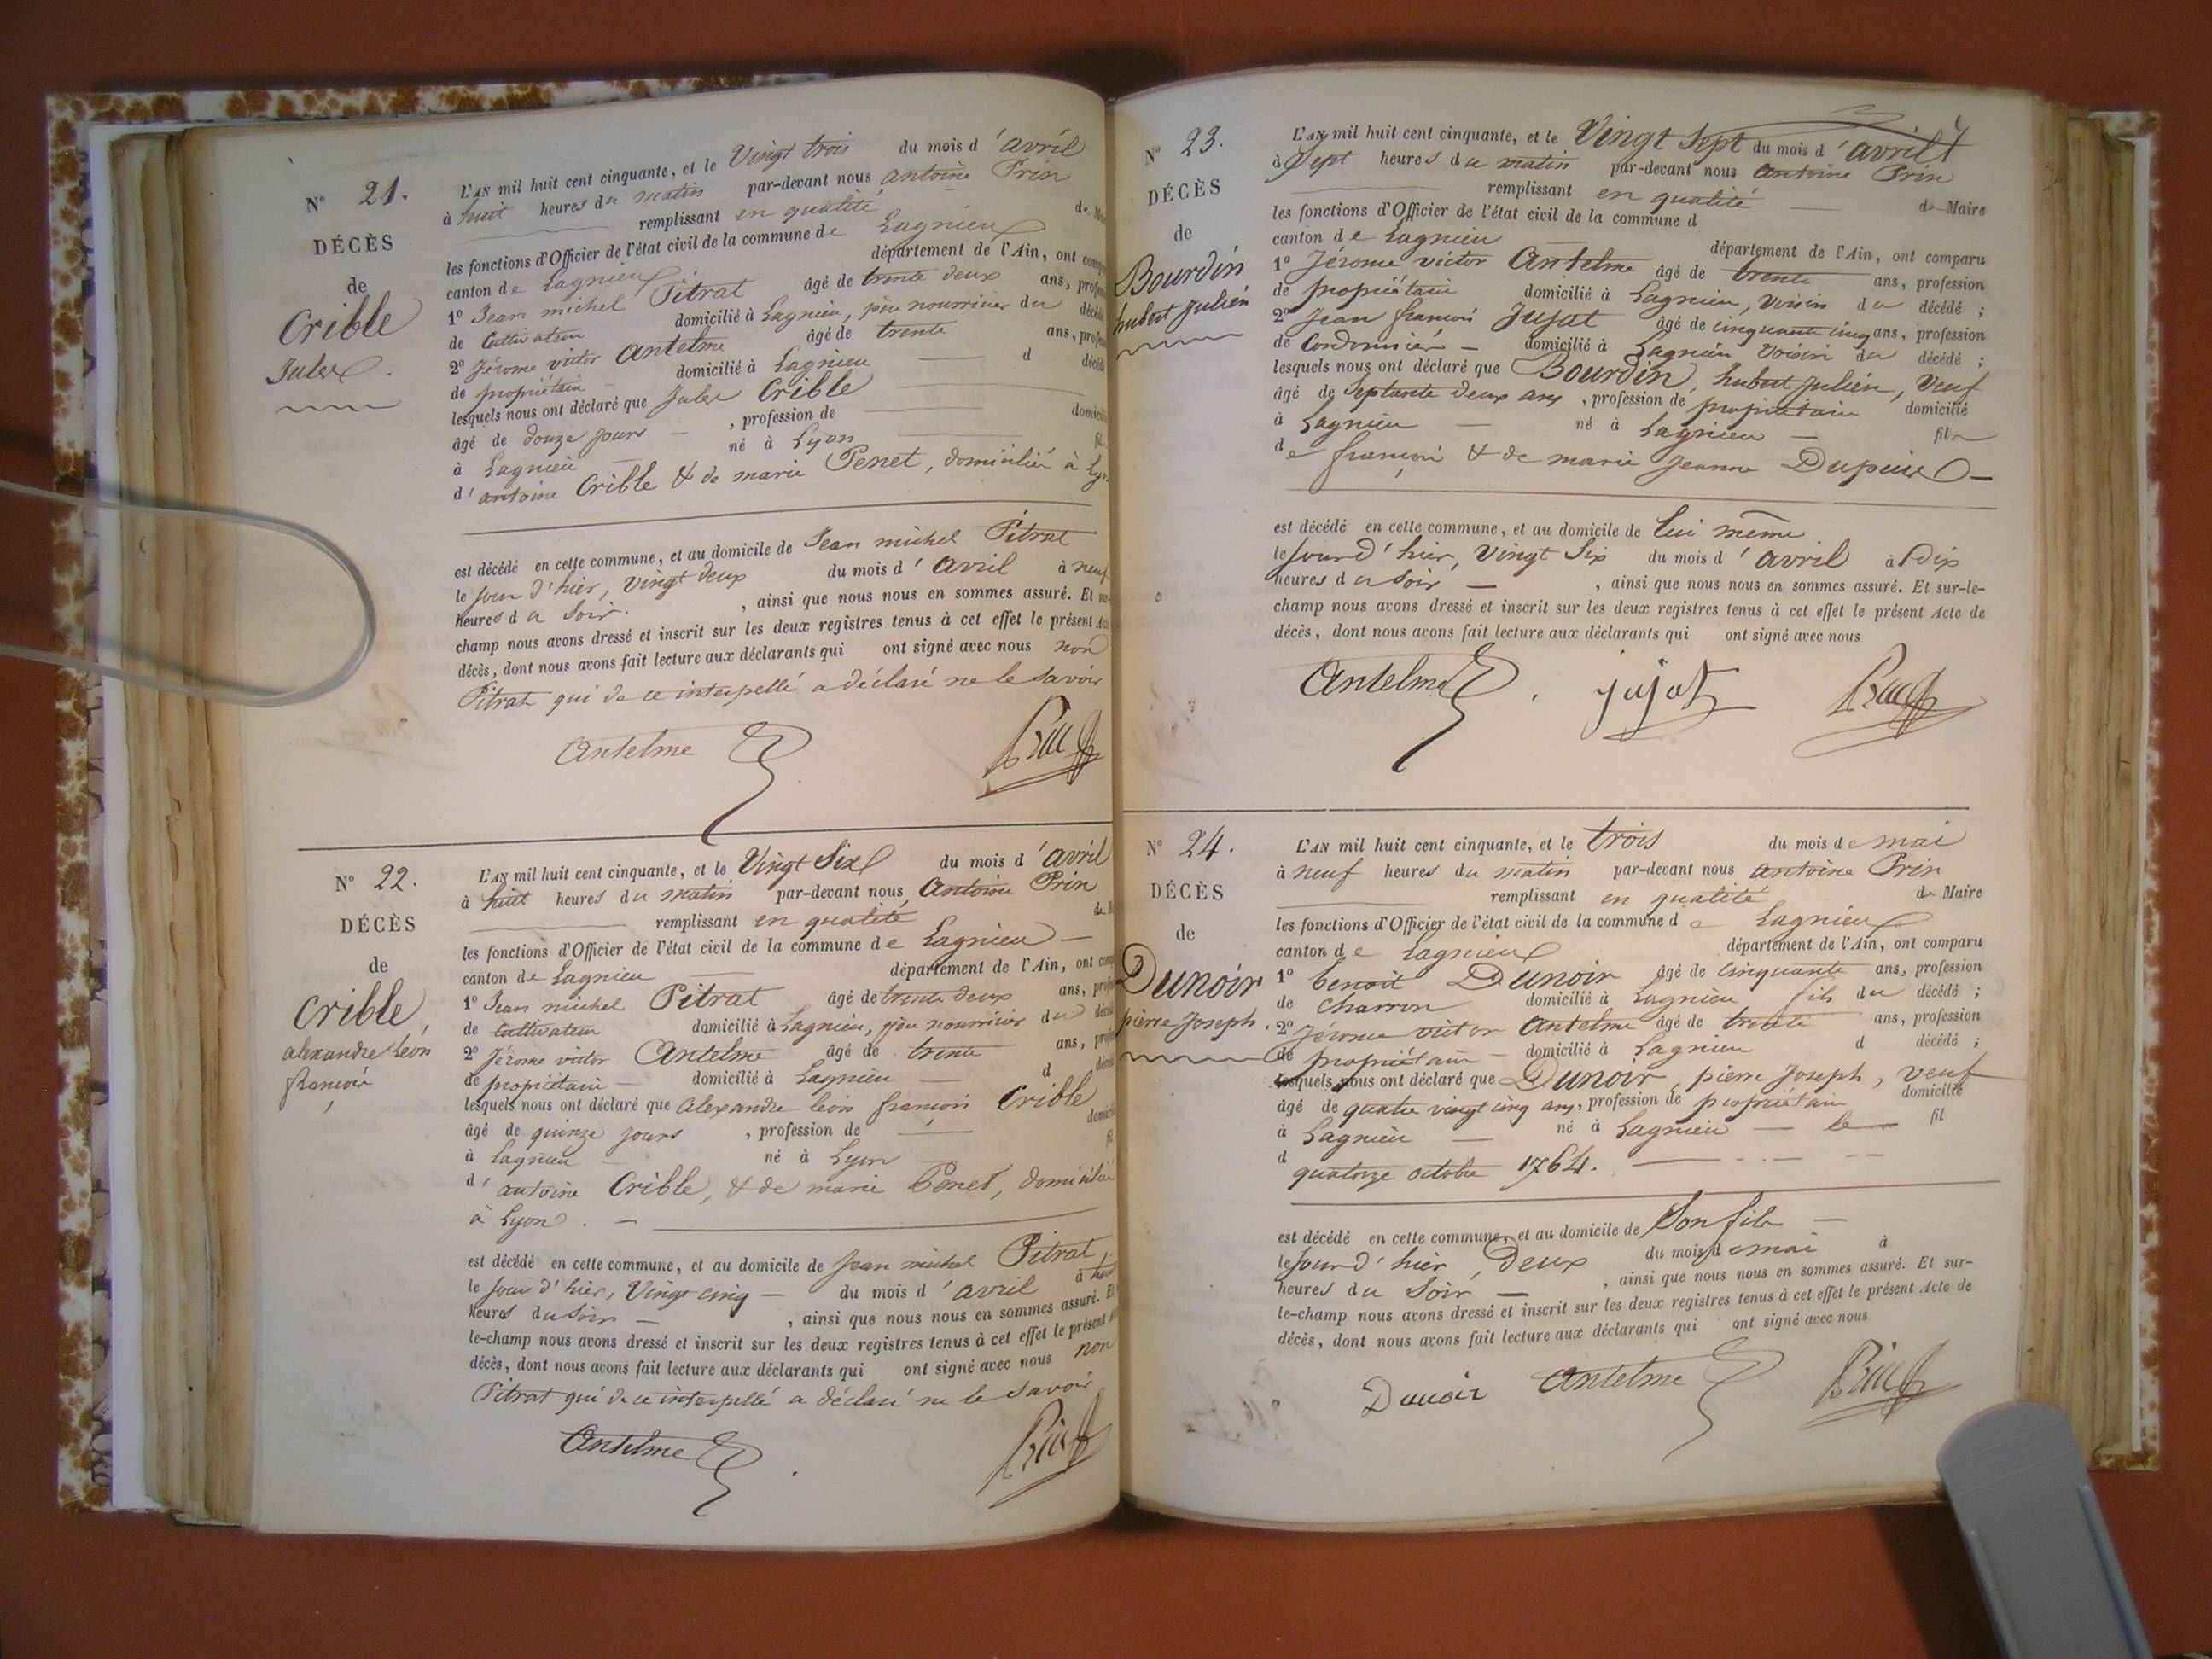 N° 21.
DÉCÈS
de
Crible
Jules
L'AN mil huit cent cinquante, et le Vingt trois du mois d'avril
à huit heures du matin par-devant nous antoine Prin
remplissant en qualité de
les fonctions d'Officier de l'état civil de la commune de Lagnieu
canton de Lagnieu département de l'Ain, ont
1° Jean michel Pitrat âgé de trente deux ans,
de Cultivateur domicilié à Lagnieu, père nourricier du
2° Jérome victor Antelme âgé de trente ans,
de propriétaire domicilié à Lagnieu d
lesquels nous ont déclaré que Jules Crible
âgé de douze jours , profession de
à Lagnieu né à Lyon
d'antoine Crible & de marie Penet, domiciliés à
est décédé en cette commune, et au domicile de Jean michel Pitrat
le jour d'hier, vingt deux du mois d'avril à neuf
heures du Soir. , ainsi que nous nous en sommes assuré. Et
champ nous avons dressé et inscrit sur les deux registres tenus à cet effet le présent
décès, dont nous avons fait lecture aux déclarants qui ont signé avec nous non
Pitrat qui de ce interpellé a déclaré ne le savoir
Antelme Prin
N° 22.
DÉCÈS
de
Crible
alexandre Léon
françois
L'AN mil huit cent cinquante, et le Vingt Six du mois d'avril
à huit heures du matin par-devant nous, Antoine Prin
remplissant en qualité
les fonctions d'Officier de l'état civil de la commune de Lagnieu
canton de Lagnieu département de l'Ain, ont
1° Jean michel Pitrat âgé de trente deux ans,
de Cultivateur domicilié à Lagnieu, père nourricier du
2° Jérome victor Antelme âgé de trente ans,
de propriétaire domicilié à Lagnieu d
lesquels nous ont déclaré que Alexandre léon françois Crible
âgé de quinze jours , profession de
à Lagnieu né à Lyon
d'antoine Crible, & de marie Penet, domiciliés
à Lyon.
est décédé en cette commune, et au domicile de Jean michel Pitrat,
le jour d'hier, Vingt cinq du mois d'avril à
heures du Soir , ainsi que nous nous en sommes assuré. Et
le-champ nous avons dressé et inscrit sur les deux registres tenus à cet effet le présent
décès, dont nous avons fait lecture aux déclarants qui ont signé avec nous non
Pitrat qui de ce interpellé a déclaré ne le savoir
Antelme Prin
N° 23.
DÉCÈS
de
Bourdin
hubert julien
L'AN mil huit cent cinquante, et le Vingt Sept du mois d'avril
à Sept heures du matin par-devant nous Antoine Prin
remplissant en qualité de Maire
les fonctions d'Officier de l'état civil de la commune d
canton de Lagnieu département de l'Ain, ont comparu
1° Jérome victor Antelme âgé de trente ans, profession
de propriétaire domicilié à Lagnieu, voisin du décédé ;
2° Jean françois Jujat âgé de cinquante cinq ans, profession
de Cordonnier domicilié à Lagnieu voisin du décédé ;
lesquels nous ont déclaré que Bourdin, hubert julien, veuf
âgé de Septante deux ans , profession de propriétaire domicilié
à Lagnieu né à Lagnieu fils
de françois & de marie Jeanne Dupuis
est décédé en cette commune, et au domicile de lui même
le Jour d'hier, Vingt Six du mois d'avril à Dix
heures du Soir , ainsi que nous nous en sommes assuré. Et sur-le-
champ nous avons dressé et inscrit sur les deux registres tenus à cet effet le présent Acte de
décès, dont nous avons fait lecture aux déclarants qui ont signé avec nous
Antelme jujat Prin
N° 24.
DÉCÈS
de
Dunoir
pierre Joseph.
L'AN mil huit cent cinquante, et le trois du mois de mai
à neuf heures du matin par-devant nous antoine Prin
remplissant en qualité de Maire
les fonctions d'Officier de l'état civil de la commune de Lagnieu
canton de Lagnieu département de l'Ain, ont comparu
1° benoit Dunoir âgé de Cinquante ans, profession
de Charron domicilié à Lagnieu fils du décédé ;
2° Jérome victor Antelme âgé de trente ans, profession
de propriétaire domicilié à Lagnieu d décédé ;
lesquels nous ont déclaré que Dunoir, pierre Joseph, veuf
âgé de quatre vingt cinq ans, profession de propriétaire domicilié
à Lagnieu né à Lagnieu le fil
d quatorze octobre 1764.
est décédé en cette commune, et au domicile de Son fils
le Jour d'hier, Deux du mois de mai à
heures du Soir , ainsi que nous nous en sommes assuré. Et sur-
le-champ nous avons dressé et inscrit sur les deux registres tenus à cet effet le présent Acte de
décès, dont nous avons fait lecture aux déclarants qui ont signé avec nous
Dunoir Antelme Prin